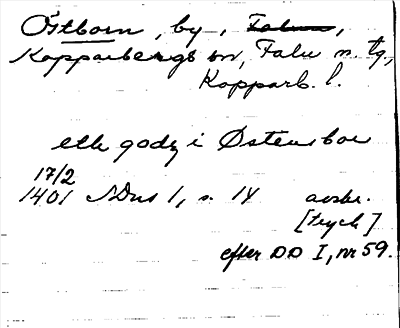 Östborn, by, Falun,
Kopparbergs sn, Falu n. tg,
Kopparb. l.
ett godz i Østensboe
17/2
1401 NDns 1, s. 14 avskr.
[tryck]
efter DD I, nr 59.